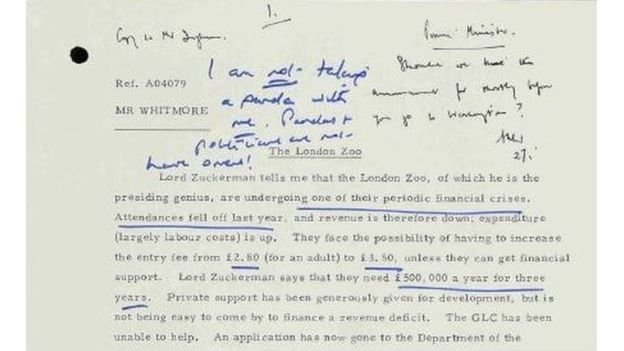 1.
Copy to Mr Ingham.
Prime Minister.
I am not taking
a panda with
me. Pandas &
politicians are not
happy omens!
Should we
for shortly before
you go to Washington?
27.
Ref. A04079
MR WHITMORE
The London Zoo
Lord Zuckerman tells me that the London Zoo, of which he is the
presiding genius, are undergoing one of their periodic financial crises.
Attendances fell off last year, and revenue is therefore down; expenditure
(largely labour costs) is up. They face the possibility of having to increase
the entry fee from £2.80 (for an adult) to £3.50, unless they can get financial
support. Lord Zuckerman says that they need £500,000 a year for three
years. Private support has been generously given for development, but is
not being easy to come by to finance a revenue deficit. The GLC has been
unable to help. An application has now gone to the Department of the